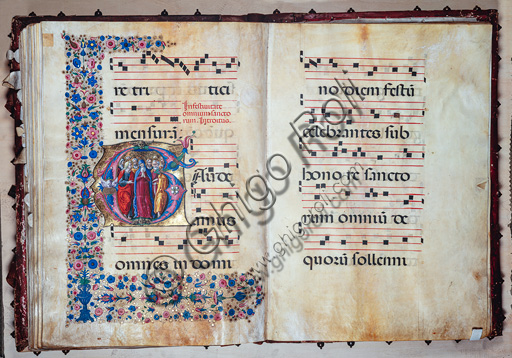 re tri tici
In festivitate
omnium sancto
rum. Introitus.
mensurā.
GAude
amus
omnes in domi
no diem festū
celebrantes sub
hono re sancto
rum omniū de
quorū sollenni
© Ghigo Roli
www.ghigoroli.com